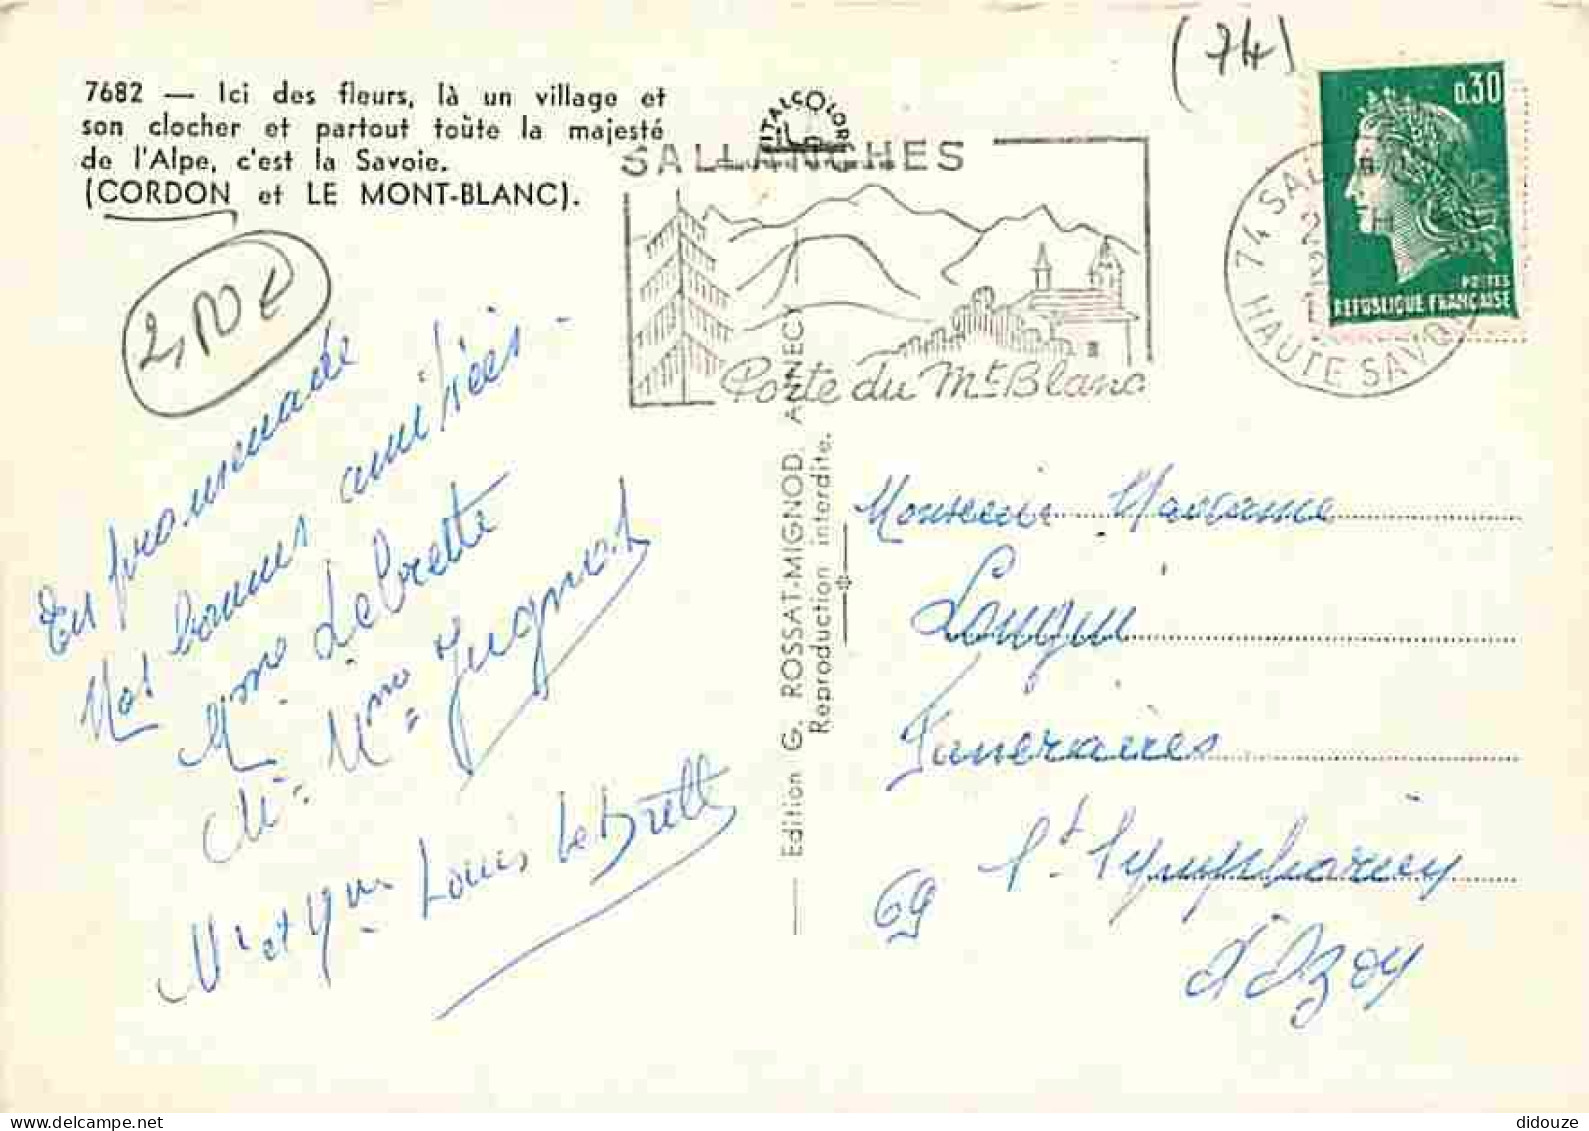 (74)
7682 — Ici des fleurs, là un village et
son clocher et partout toute la majesté
de l'Alpe, c'est la Savoie.
(CORDON et LE MONT-BLANC).
ITALCOLOR
SALLANCHES
Porte du Mt Blanc
74 SAL
HAUTE SAVOI
0.30
POSTES
REPUBLIQUE FRANÇAISE
En promenade
Nos bonnes amitiés -
Mme Lebrette
Mr Mme Jugnot
Mr et Mme Louis Lebrett
Edition G. ROSSAT-MIGNOD. ANNECY
Reproduction interdite.
Monsieur
Longin
Funeraires
St Symphorien
d'Ozoy
69
didouze